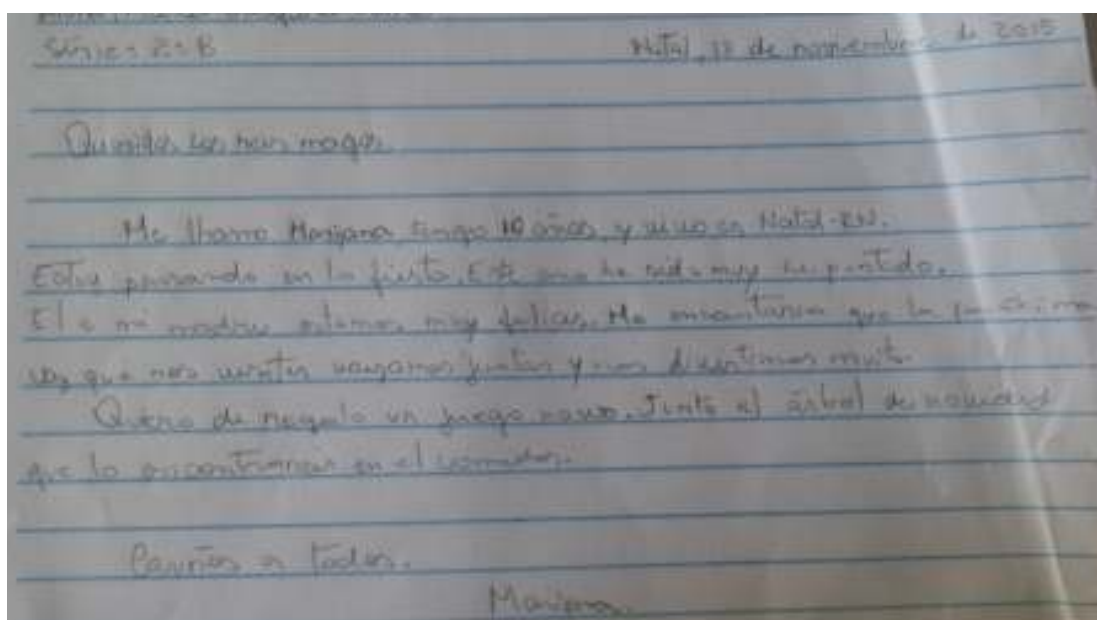 Série: 2º B Natal, 18 de noviembre de 2015
Queridos los reis magos
Me lhamo Mariana tengo 10 años, y vivo en Natal-RN.
Estoy pensando en la fiesta. Este ano ha sido muy
El e mi madre estamos muy felices. Me encantaria que la próxima
vez que nos juntos y nos divertimos mucho.
Quero de regalo un juego novo. Junto al árbol de
que lo en el comedor.
Cariños a todos.
Mariana